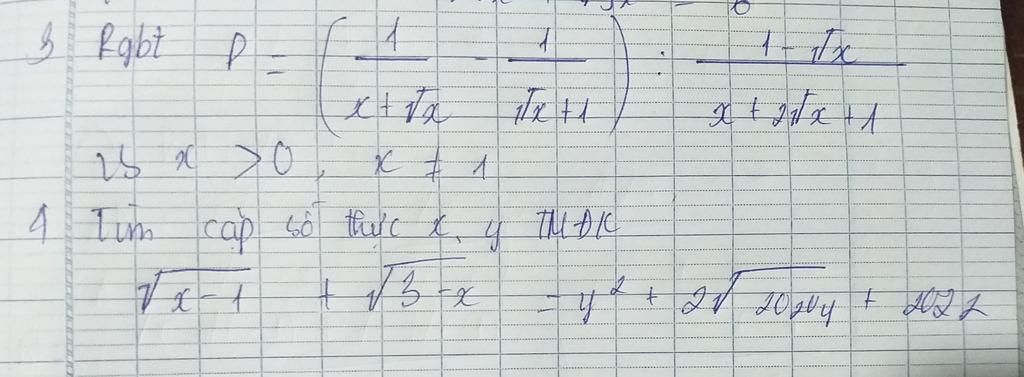 3 Rgbt P = (1/(x+√x) - 1/(√x+1)) : (1-√x)/(x+2√x+1)
vs x > 0, x ≠ 1
4 Tìm cặp số thực x, y TMĐK
√(x-1) + √(3-x) = y² + 2√(2020y) + 2022